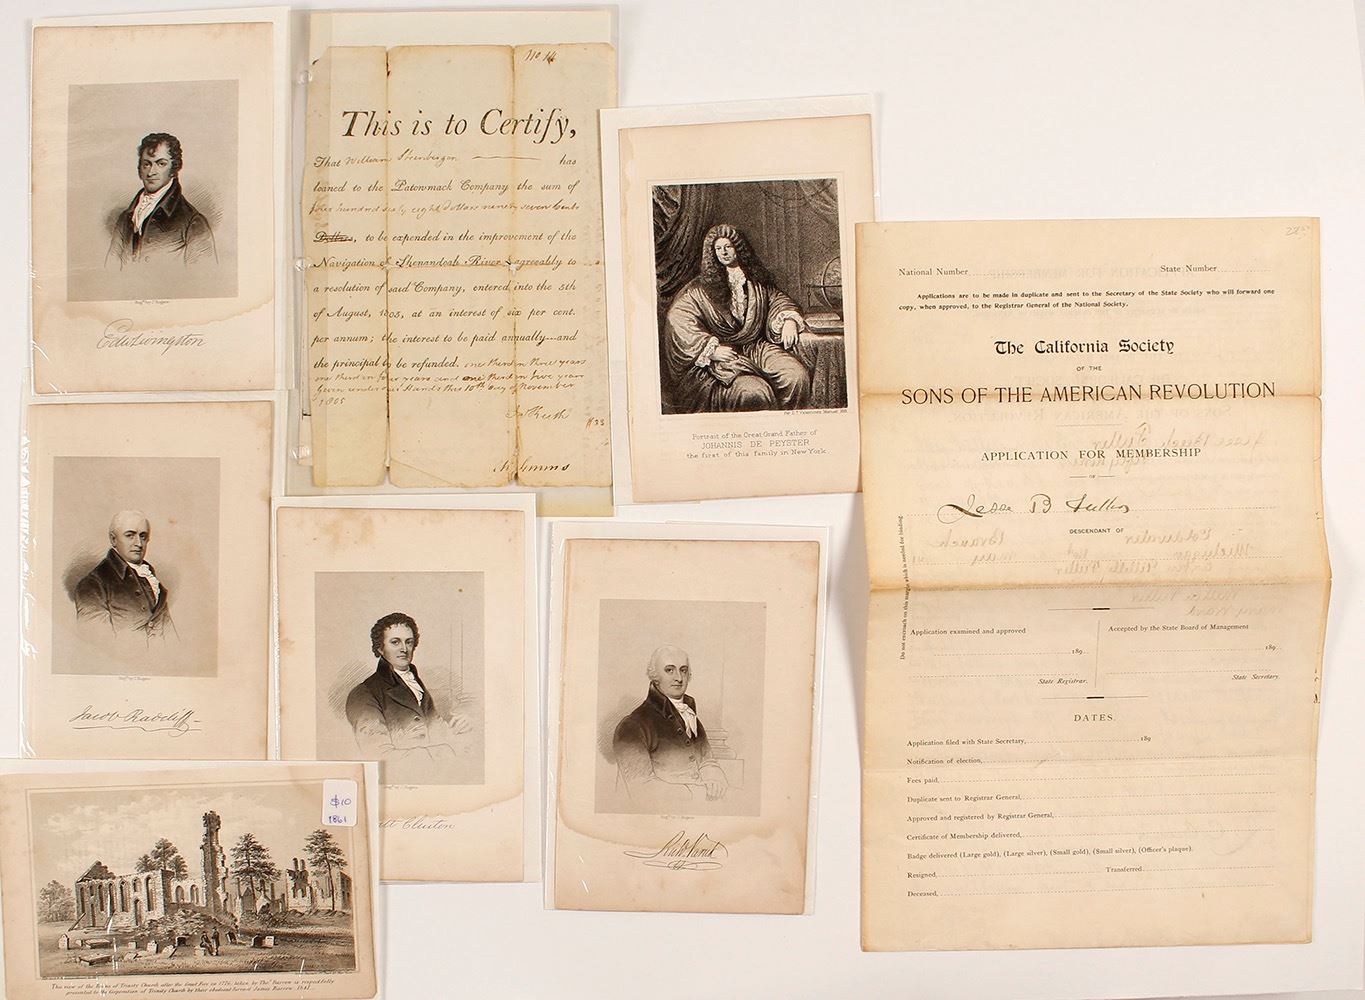 Edw Livingston
No. 14
This is to Certify,
That William Steenbergen has
loaned to the Patowmack Company the sum of
four hundred sixty eight dollars ninety seven Cents
Dollars, to be expended in the improvement of the
Navigation of Shenandoah River agreeably to
a resolution of said Company, entered into the 5th
of August, 1805, at an interest of six per cent.
per annum; the interest to be paid annually—and
the principal to be refunded, one third in three years
one third in four years and one third in five years
Given under our Hands this 10th day of November
1805
Js Keith
Portrait of the Great Grand Father of
JOHANNIS DE PEYSTER
the first of this family in New York
Jacob Radcliff
Clinton
$10
1861
This view of the Ruins of Trinity Church after the Great Fire in 1776, taken by Thos. Barrow is respectfully
presented to the Corporation of Trinity Church by their obedient Servant James Barrow 1841
National Number State Number
Applications are to be made in duplicate and sent to the Secretary of the State Society who will forward one
copy, when approved, to the Registrar General of the National Society.
The California Society
OF THE
SONS OF THE AMERICAN REVOLUTION
APPLICATION FOR MEMBERSHIP
OF
Jesse B Fuller
DESCENDANT OF
Do not encroach on this margin which is needed for binding
Application examined and approved
189
State Registrar.
Accepted by the State Board of Management
189
State Secretary.
DATES.
Application filed with State Secretary, 189
Notification of election,
Fees paid,
Duplicate sent to Registrar General,
Approved and registered by Registrar General,
Certificate of Membership delivered,
Badge delivered (Large gold), (Large silver), (Small gold), (Small silver), (Officer's plaque).
Resigned, Transferred
Deceased,